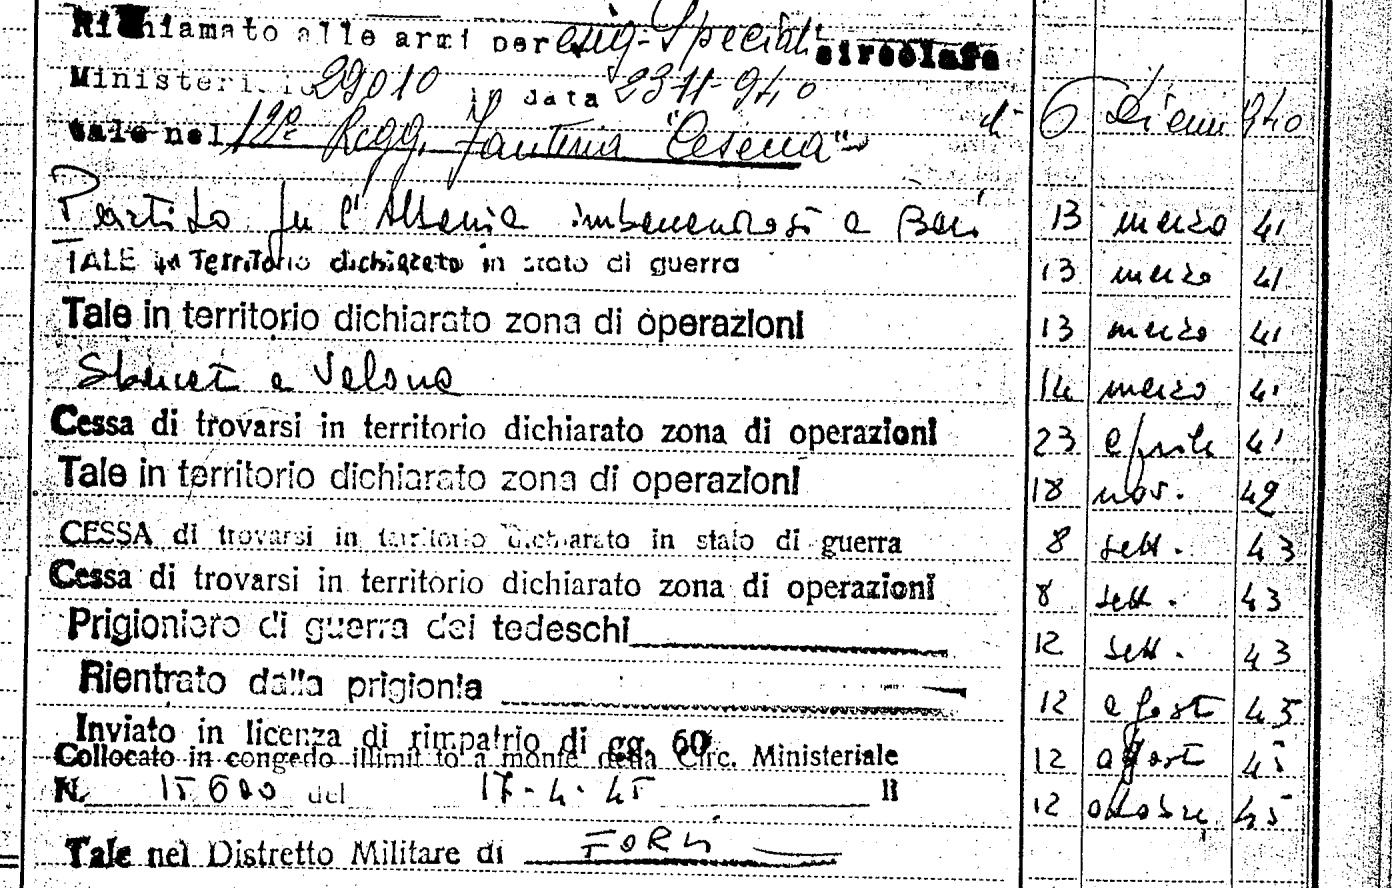 Richiamato alle armi per esig. Speciali circolare
Ministeri 29010 in data 23-11-940
tale nel 12° Regg. Fanteria "Cesena" li 6 Dicem 940
Partito per l'Albania imbarcandosi a Bari 13 marzo 41
TALE in Territorio dichiarato in stato di guerra 13 marzo 41
Tale in territorio dichiarato zona di operazioni 13 marzo 41
Sbarcat a Valona 14 marzo 41
Cessa di trovarsi in territorio dichiarato zona di operazioni 23 aprile 41
Tale in territorio dichiarato zona di operazioni 18 nov. 42
CESSA di trovarsi in territorio dichiarato in stato di guerra 8 sett. 43
Cessa di trovarsi in territorio dichiarato zona di operazioni 8 sett. 43
Prigioniero di guerra dei tedeschi 12 sett. 43
Rientrato dalla prigionia 12 agost 45
Inviato in licenza di rimpatrio di gg. 60 12 agost 45
Collocato in congedo illimitato a monte della Circ. Ministeriale
N. 15600 del 17-4-45 li 12 ottobre 45
Tale nel Distretto Militare di FORLI